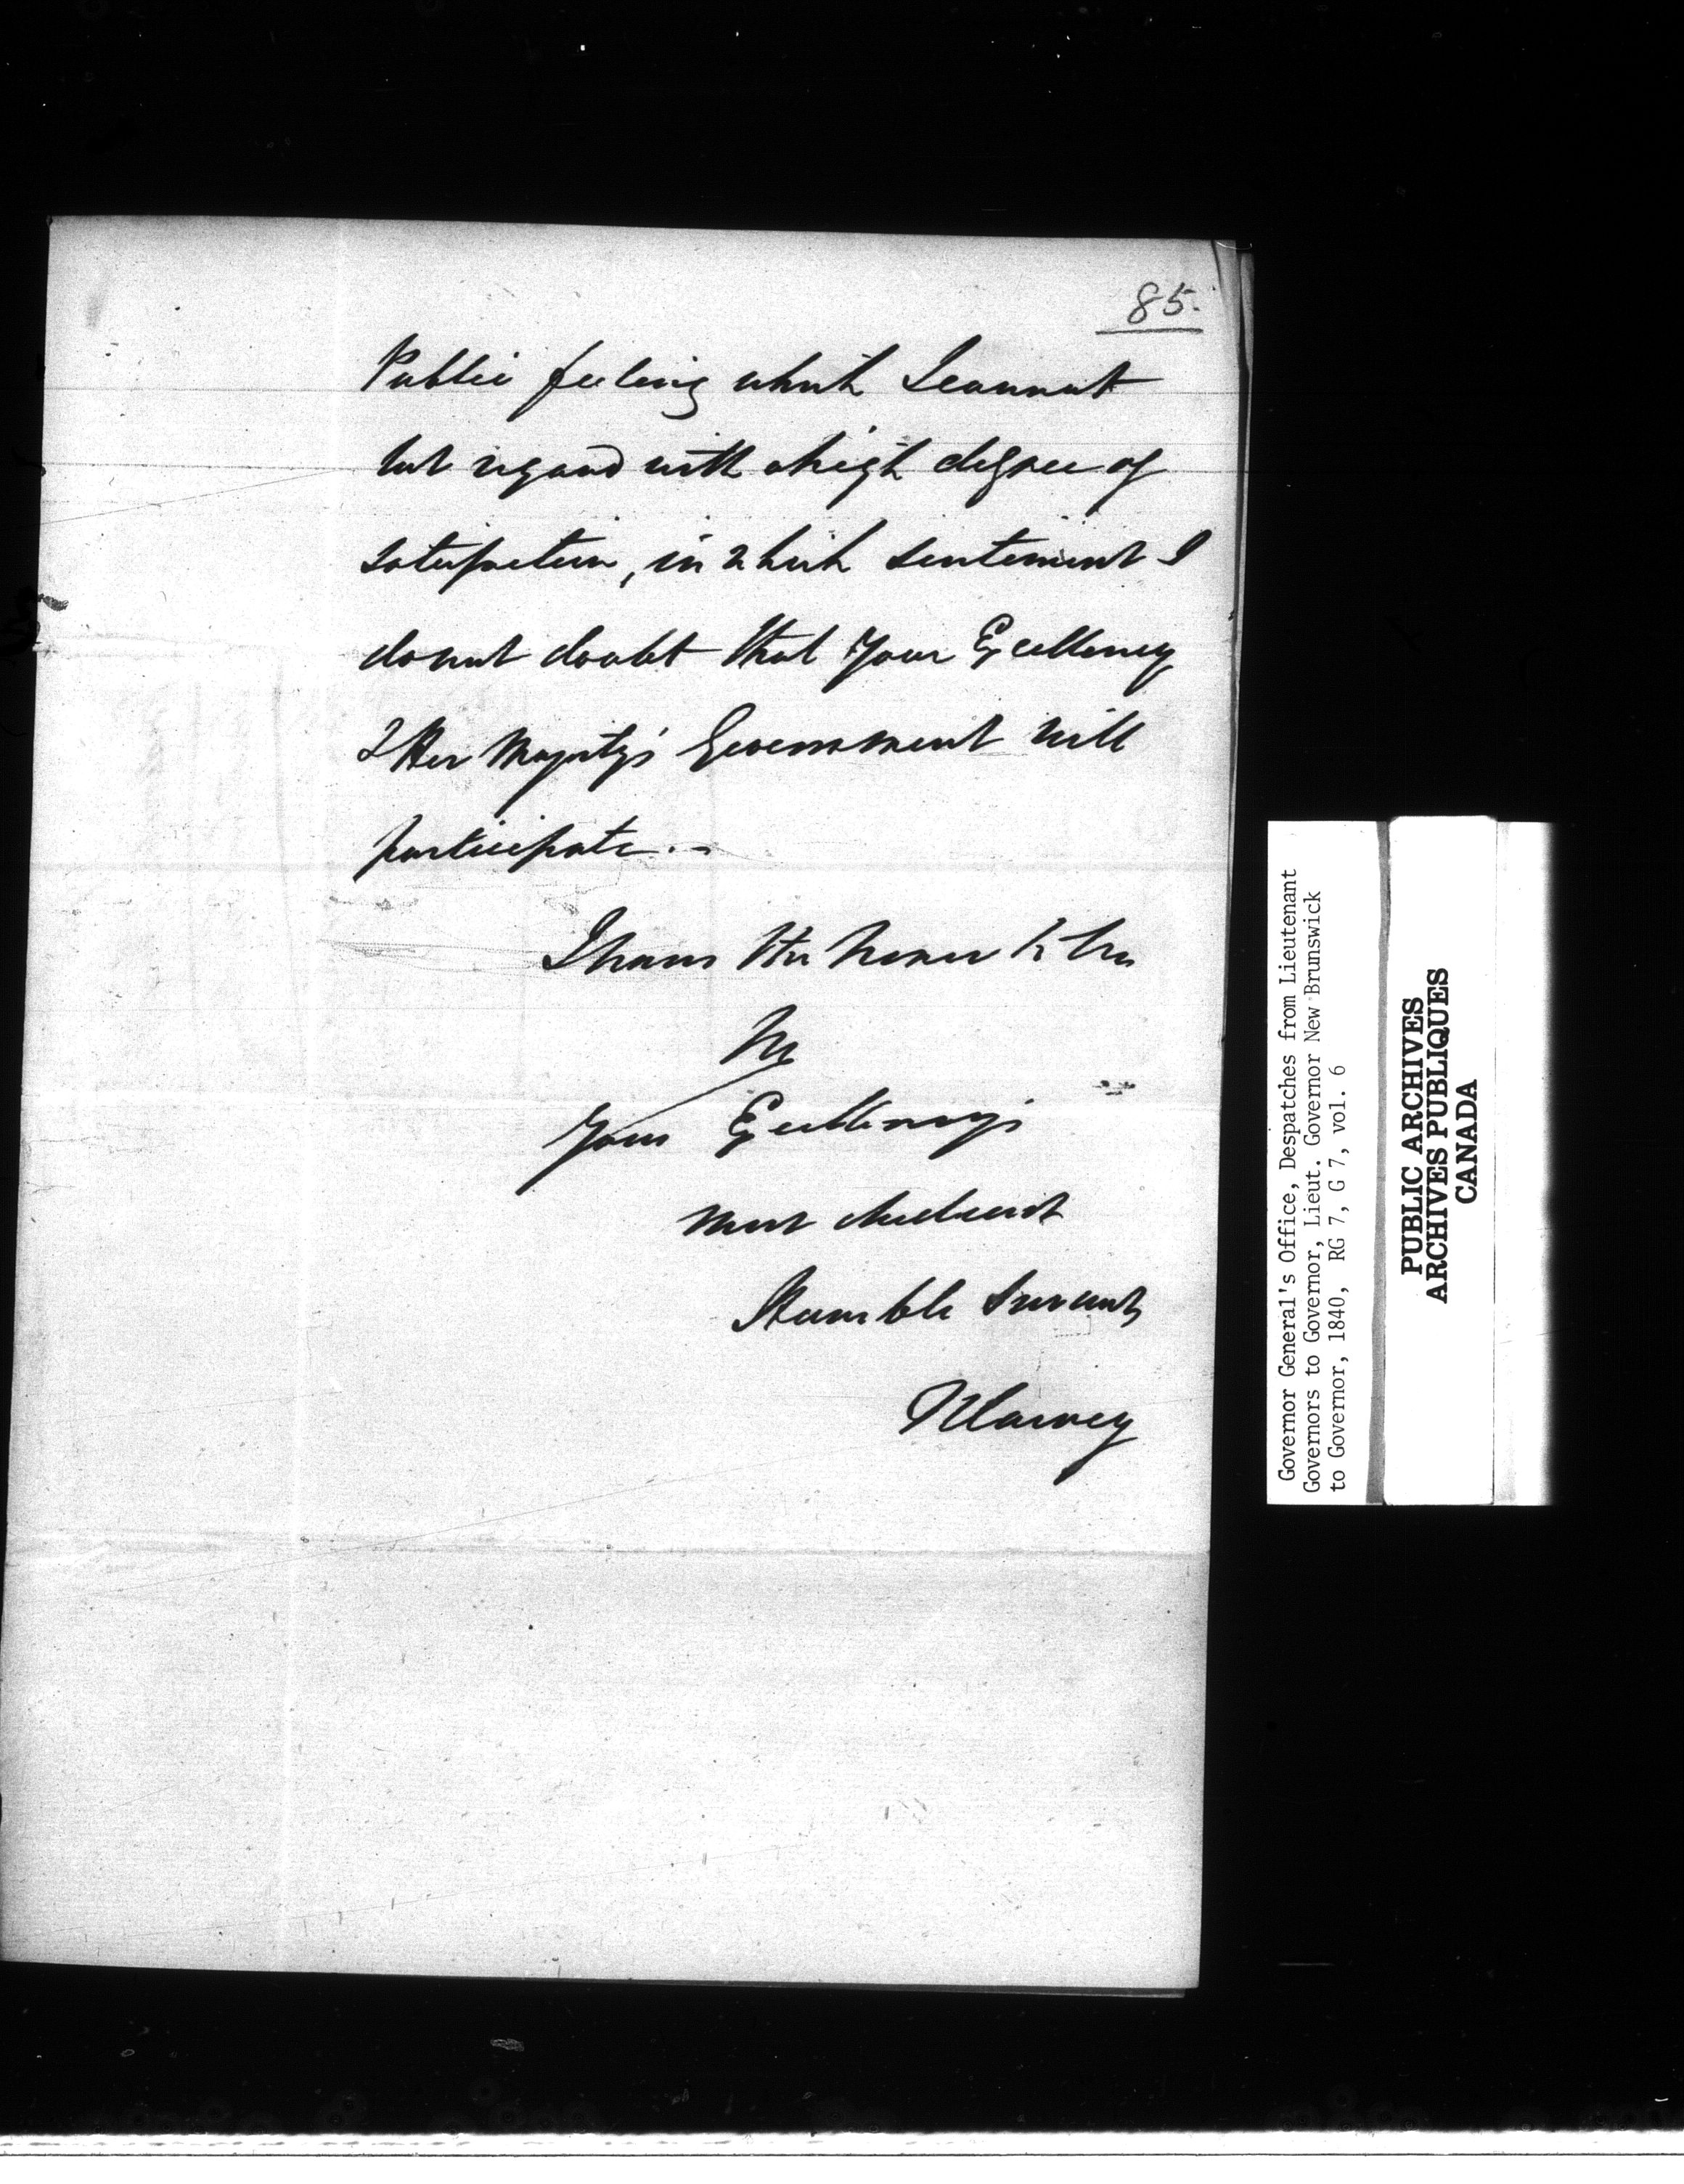 85.
Public feeling which I cannot
but regard with a high degree of
satisfaction, in which sentiment I
do not doubt that Your Excellency
& Her Majesty's Government will
participate. –
I have the honor to be
Sir
Your Excellency's
most obedient
Humble Servant
J Harvey
Governor General's Office, Despatches from Lieutenant
Governors to Governor, Lieut. Governor New Brunswick
to Governor, 1840, RG 7, G 7, vol. 6
PUBLIC ARCHIVES
ARCHIVES PUBLIQUES
CANADA